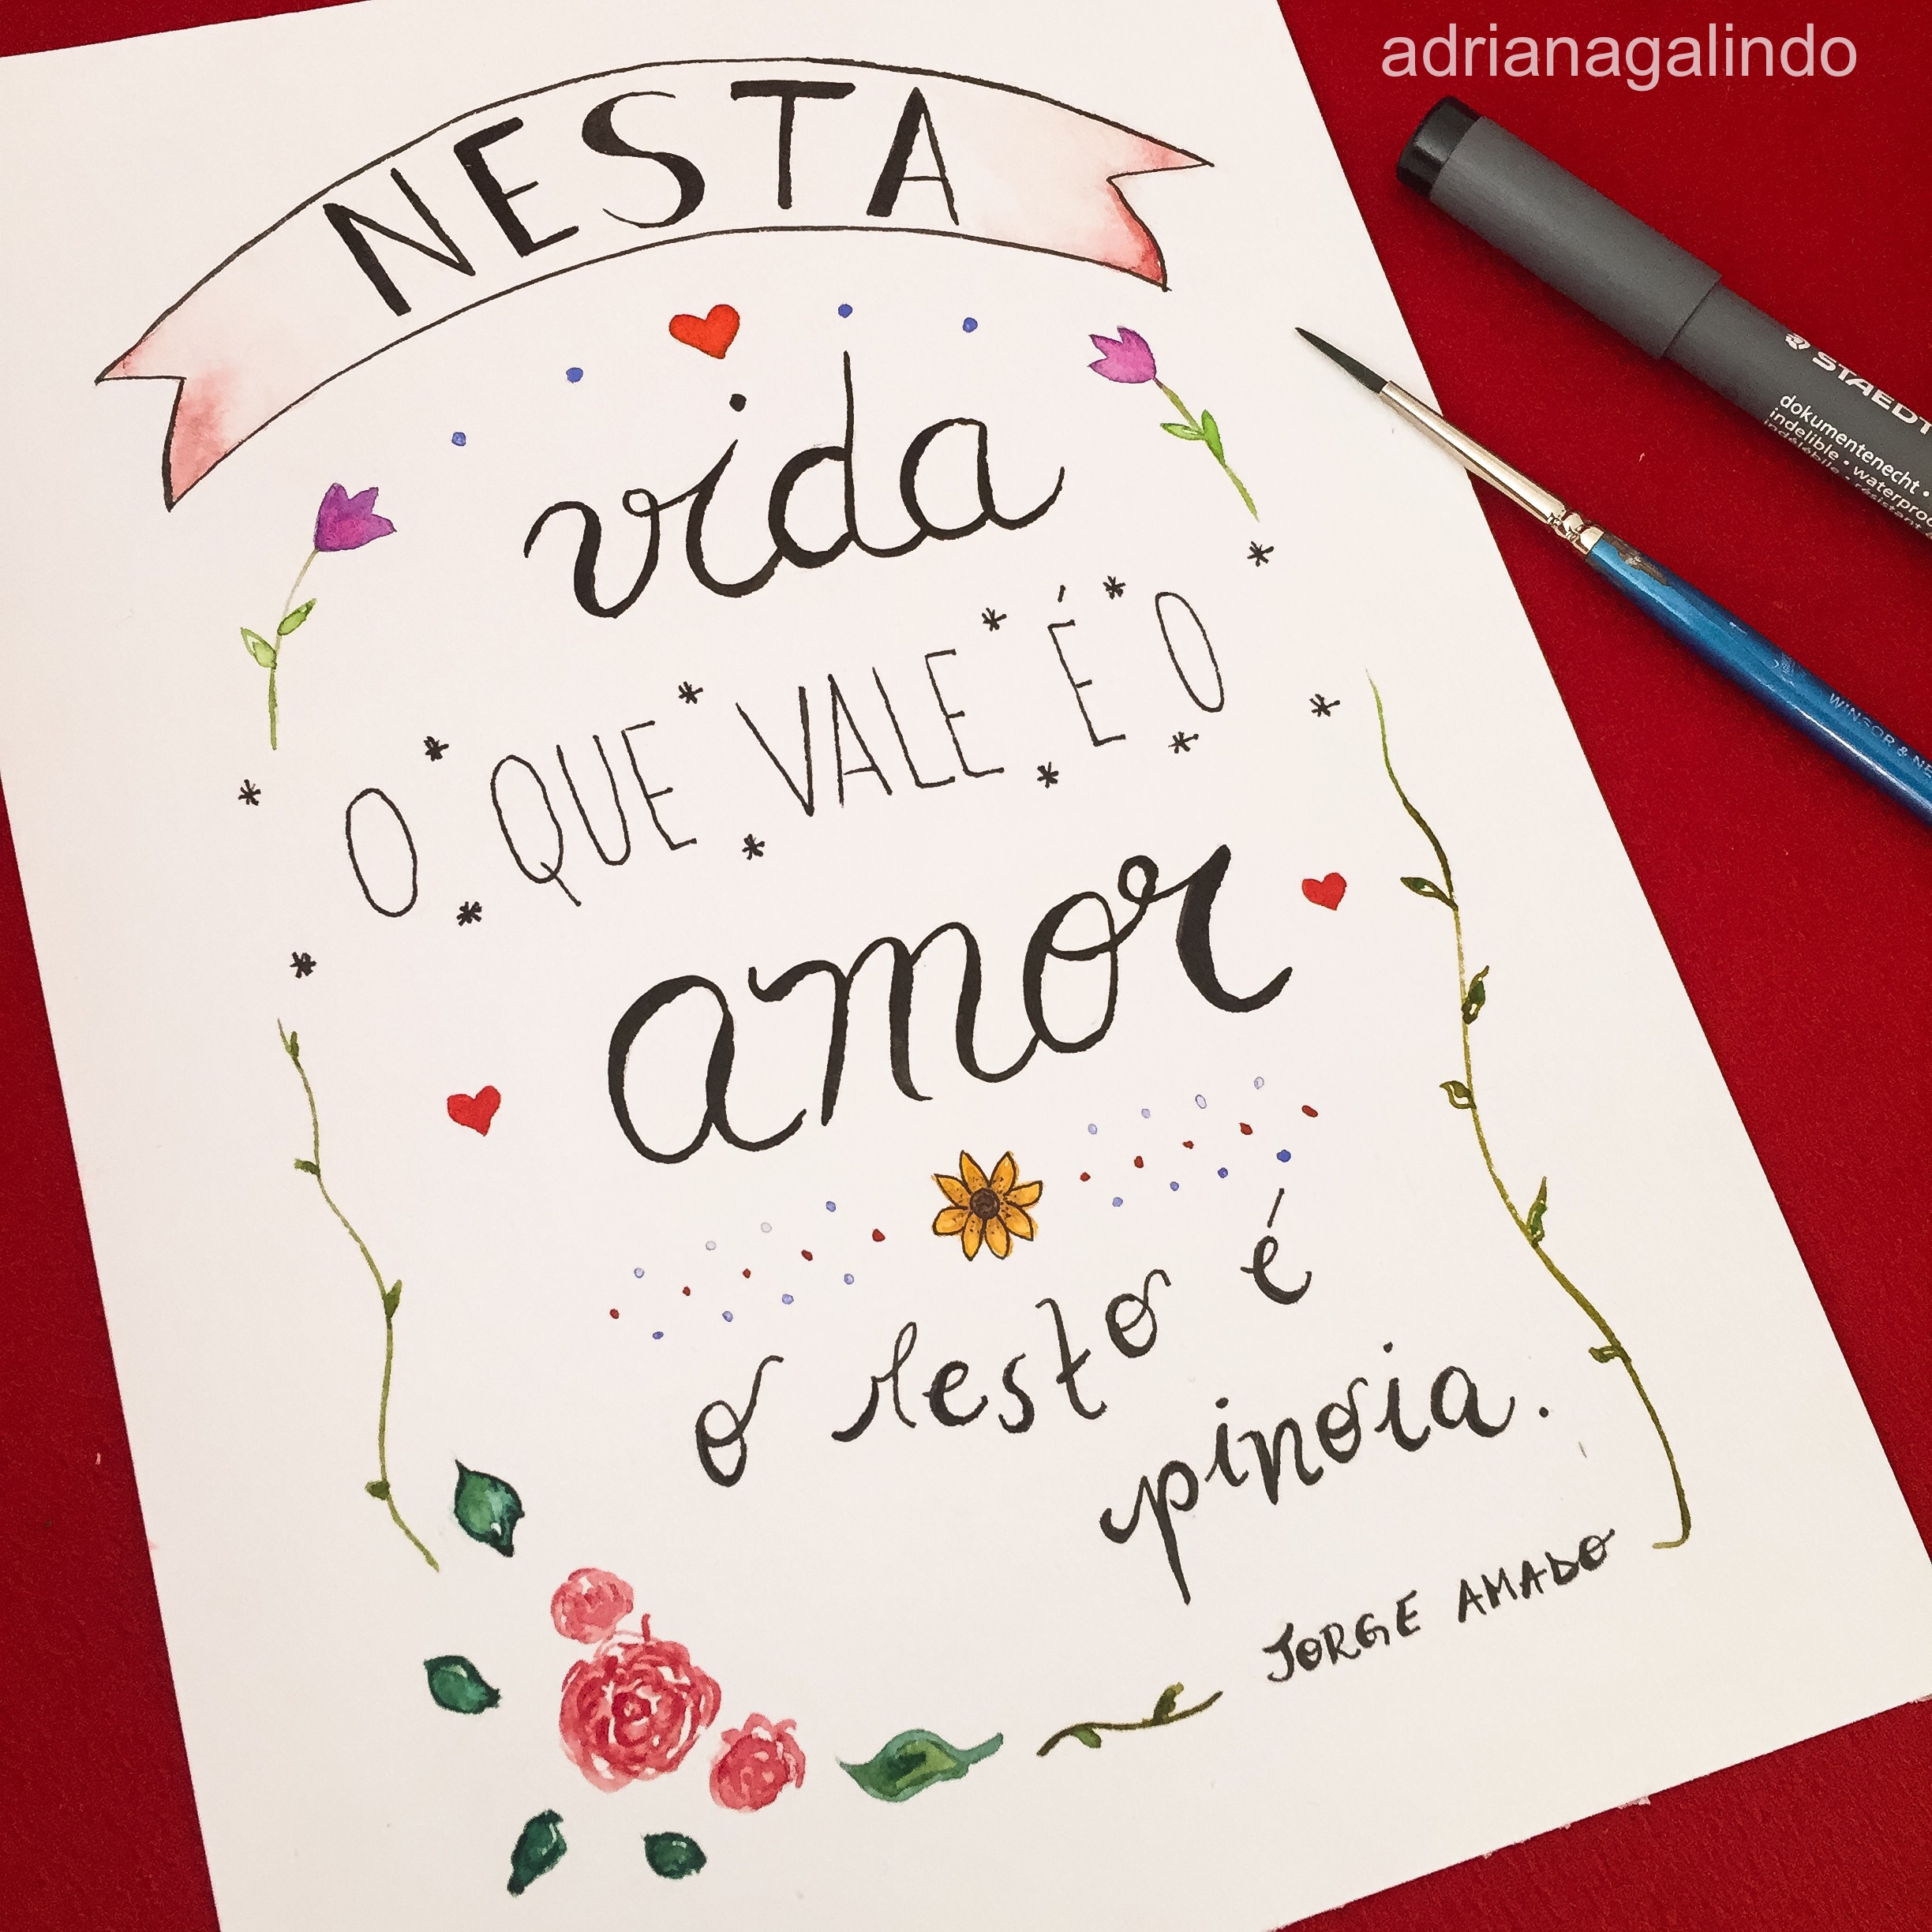 adrianagalindo
NESTA
vida
O QUE VALE É O
amor
o resto é
pinoia.
JORGE AMADO
dokumentenecht •
indelible • waterproof